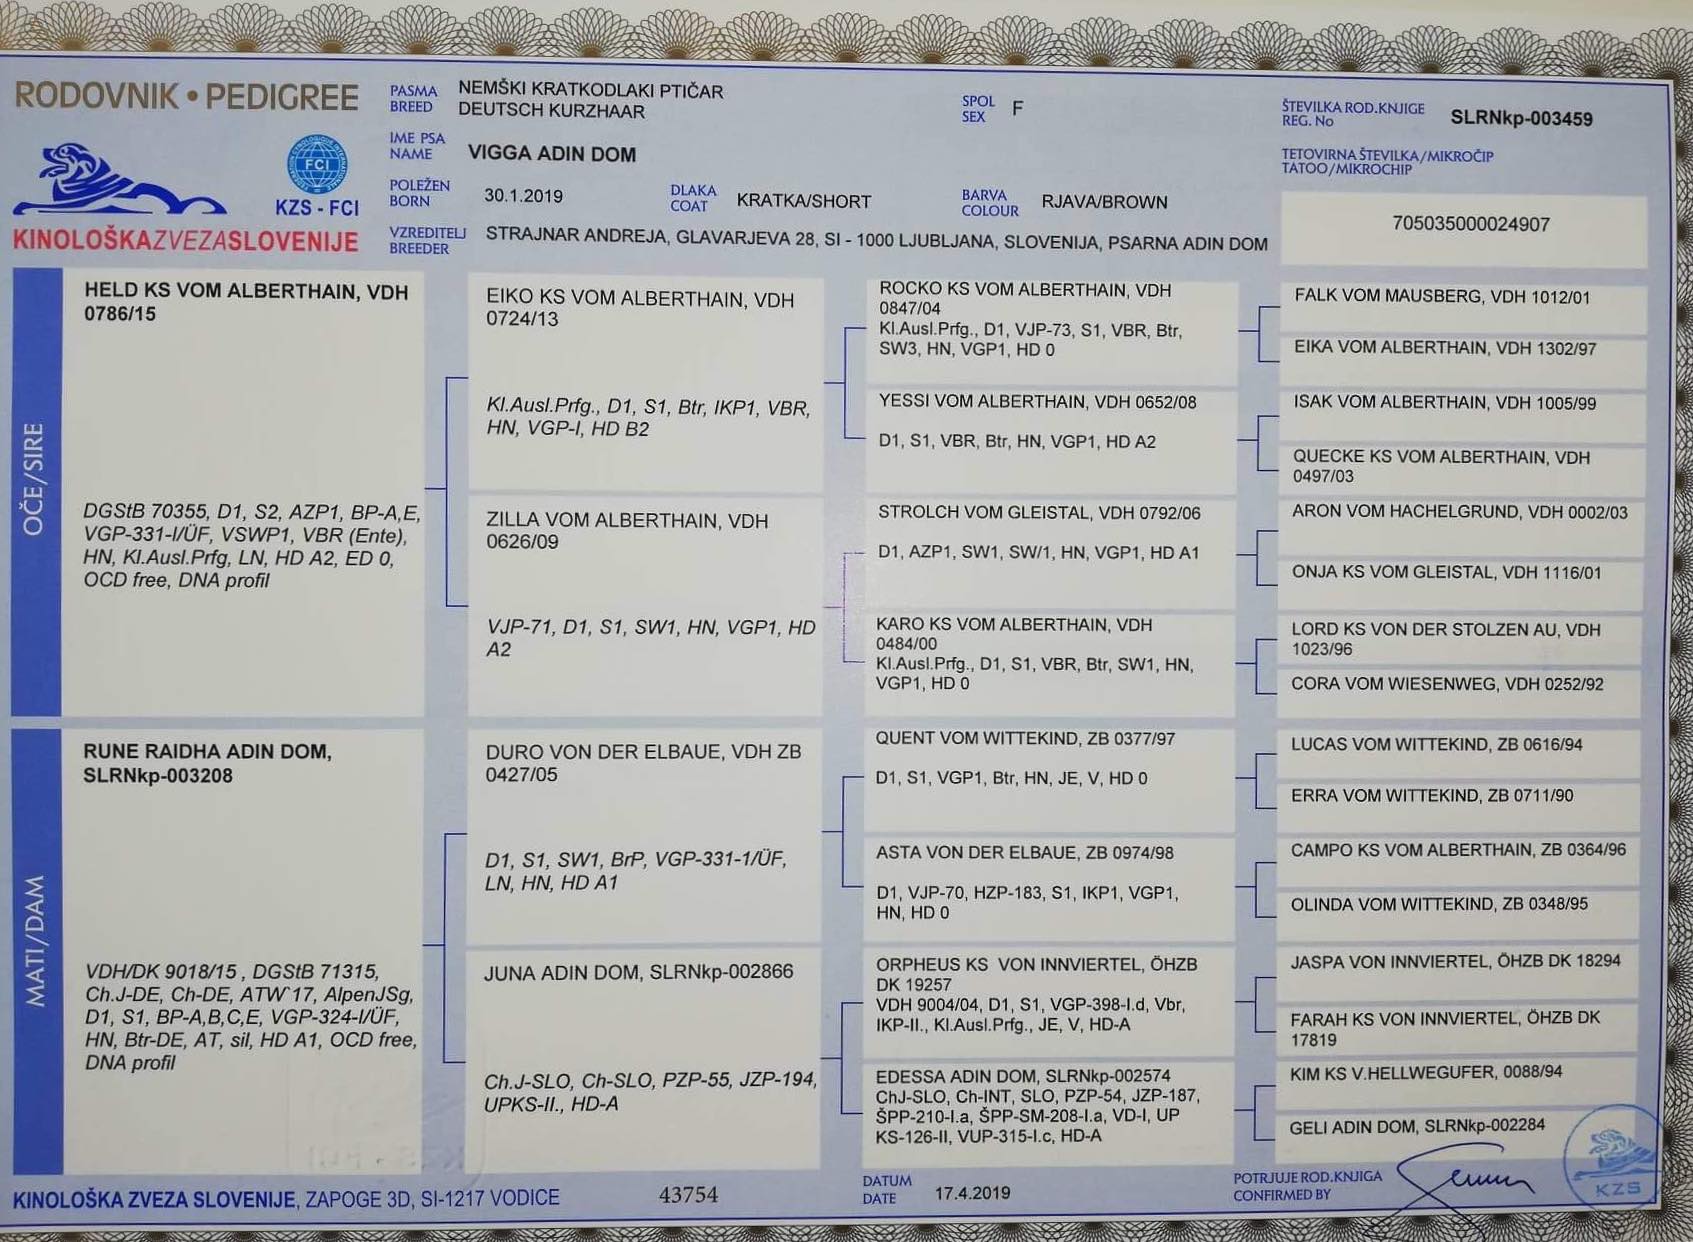 RODOVNIK • PEDIGREE
PASMA
BREED
NEMŠKI KRATKODLAKI PTIČAR
DEUTSCH KURZHAAR
SPOL
SEX
F
ŠTEVILKA ROD.KNJIGE
REG. No
SLRNkp-003459
IME PSA
NAME
VIGGA ADIN DOM
TETOVIRNA ŠTEVILKA/MIKROČIP
TATOO/MIKROCHIP
705035000024907
FCI
KZS - FCI
POLEŽEN
BORN
30.1.2019
DLAKA
COAT
KRATKA/SHORT
BARVA
COLOUR
RJAVA/BROWN
KINOLOŠKAZVEZASLOVENIJE
VZREDITELJ
BREEDER
STRAJNAR ANDREJA, GLAVARJEVA 28, SI - 1000 LJUBLJANA, SLOVENIJA, PSARNA ADIN DOM
OČE/SIRE
HELD KS VOM ALBERTHAIN, VDH
0786/15
DGStB 70355, D1, S2, AZP1, BP-A,E,
VGP-331-I/ÜF, VSWP1, VBR (Ente),
HN, Kl.Ausl.Prfg, LN, HD A2, ED 0,
OCD free, DNA profil
EIKO KS VOM ALBERTHAIN, VDH
0724/13
Kl.Ausl.Prfg., D1, S1, Btr, IKP1, VBR,
HN, VGP-I, HD B2
ZILLA VOM ALBERTHAIN, VDH
0626/09
VJP-71, D1, S1, SW1, HN, VGP1, HD
A2
ROCKO KS VOM ALBERTHAIN, VDH
0847/04
Kl.Ausl.Prfg., D1, VJP-73, S1, VBR, Btr,
SW3, HN, VGP1, HD 0
YESSI VOM ALBERTHAIN, VDH 0652/08
D1, S1, VBR, Btr, HN, VGP1, HD A2
STROLCH VOM GLEISTAL, VDH 0792/06
D1, AZP1, SW1, SW/1, HN, VGP1, HD A1
KARO KS VOM ALBERTHAIN, VDH
0484/00
Kl.Ausl.Prfg., D1, S1, VBR, Btr, SW1, HN,
VGP1, HD 0
FALK VOM MAUSBERG, VDH 1012/01
EIKA VOM ALBERTHAIN, VDH 1302/97
ISAK VOM ALBERTHAIN, VDH 1005/99
QUECKE KS VOM ALBERTHAIN, VDH
0497/03
ARON VOM HACHELGRUND, VDH 0002/03
ONJA KS VOM GLEISTAL, VDH 1116/01
LORD KS VON DER STOLZEN AU, VDH
1023/96
CORA VOM WIESENWEG, VDH 0252/92
MATI/DAM
RUNE RAIDHA ADIN DOM,
SLRNkp-003208
VDH/DK 9018/15 , DGStB 71315,
Ch.J-DE, Ch-DE, ATW`17, AlpenJSg,
D1, S1, BP-A,B,C,E, VGP-324-I/ÜF,
HN, Btr-DE, AT, sil, HD A1, OCD free,
DNA profil
DURO VON DER ELBAUE, VDH ZB
0427/05
D1, S1, SW1, BrP, VGP-331-1/ÜF,
LN, HN, HD A1
JUNA ADIN DOM, SLRNkp-002866
Ch.J-SLO, Ch-SLO, PZP-55, JZP-194,
UPKS-II., HD-A
QUENT VOM WITTEKIND, ZB 0377/97
D1, S1, VGP1, Btr, HN, JE, V, HD 0
ASTA VON DER ELBAUE, ZB 0974/98
D1, VJP-70, HZP-183, S1, IKP1, VGP1,
HN, HD 0
ORPHEUS KS VON INNVIERTEL, ÖHZB
DK 19257
VDH 9004/04, D1, S1, VGP-398-I.d, Vbr,
IKP-II., Kl.Ausl.Prfg., JE, V, HD-A
EDESSA ADIN DOM, SLRNkp-002574
ChJ-SLO, Ch-INT, SLO, PZP-54, JZP-187,
ŠPP-210-I.a, ŠPP-SM-208-I.a, VD-I, UP
KS-126-II, VUP-315-I.c, HD-A
LUCAS VOM WITTEKIND, ZB 0616/94
ERRA VOM WITTEKIND, ZB 0711/90
CAMPO KS VOM ALBERTHAIN, ZB 0364/96
OLINDA VOM WITTEKIND, ZB 0348/95
JASPA VON INNVIERTEL, ÖHZB DK 18294
FARAH KS VON INNVIERTEL, ÖHZB DK
17819
KIM KS V.HELLWEGUFER, 0088/94
GELI ADIN DOM, SLRNkp-002284
KINOLOŠKA ZVEZA SLOVENIJE, ZAPOGE 3D, SI-1217 VODICE
43754
DATUM
DATE
17.4.2019
POTRJUJE ROD.KNJIGA
CONFIRMED BY
KZS